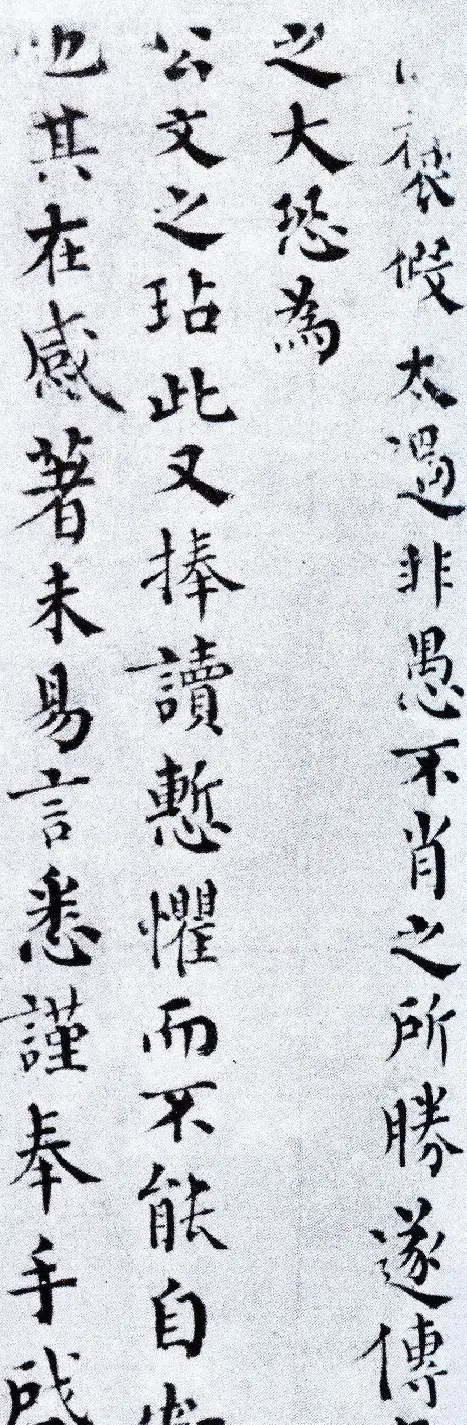 襃假太過非愚不肖之所勝遂傳
之大恐為
公文之玷此又捧讀慙懼而不能自
也其在感著未易言悉謹奉手啟